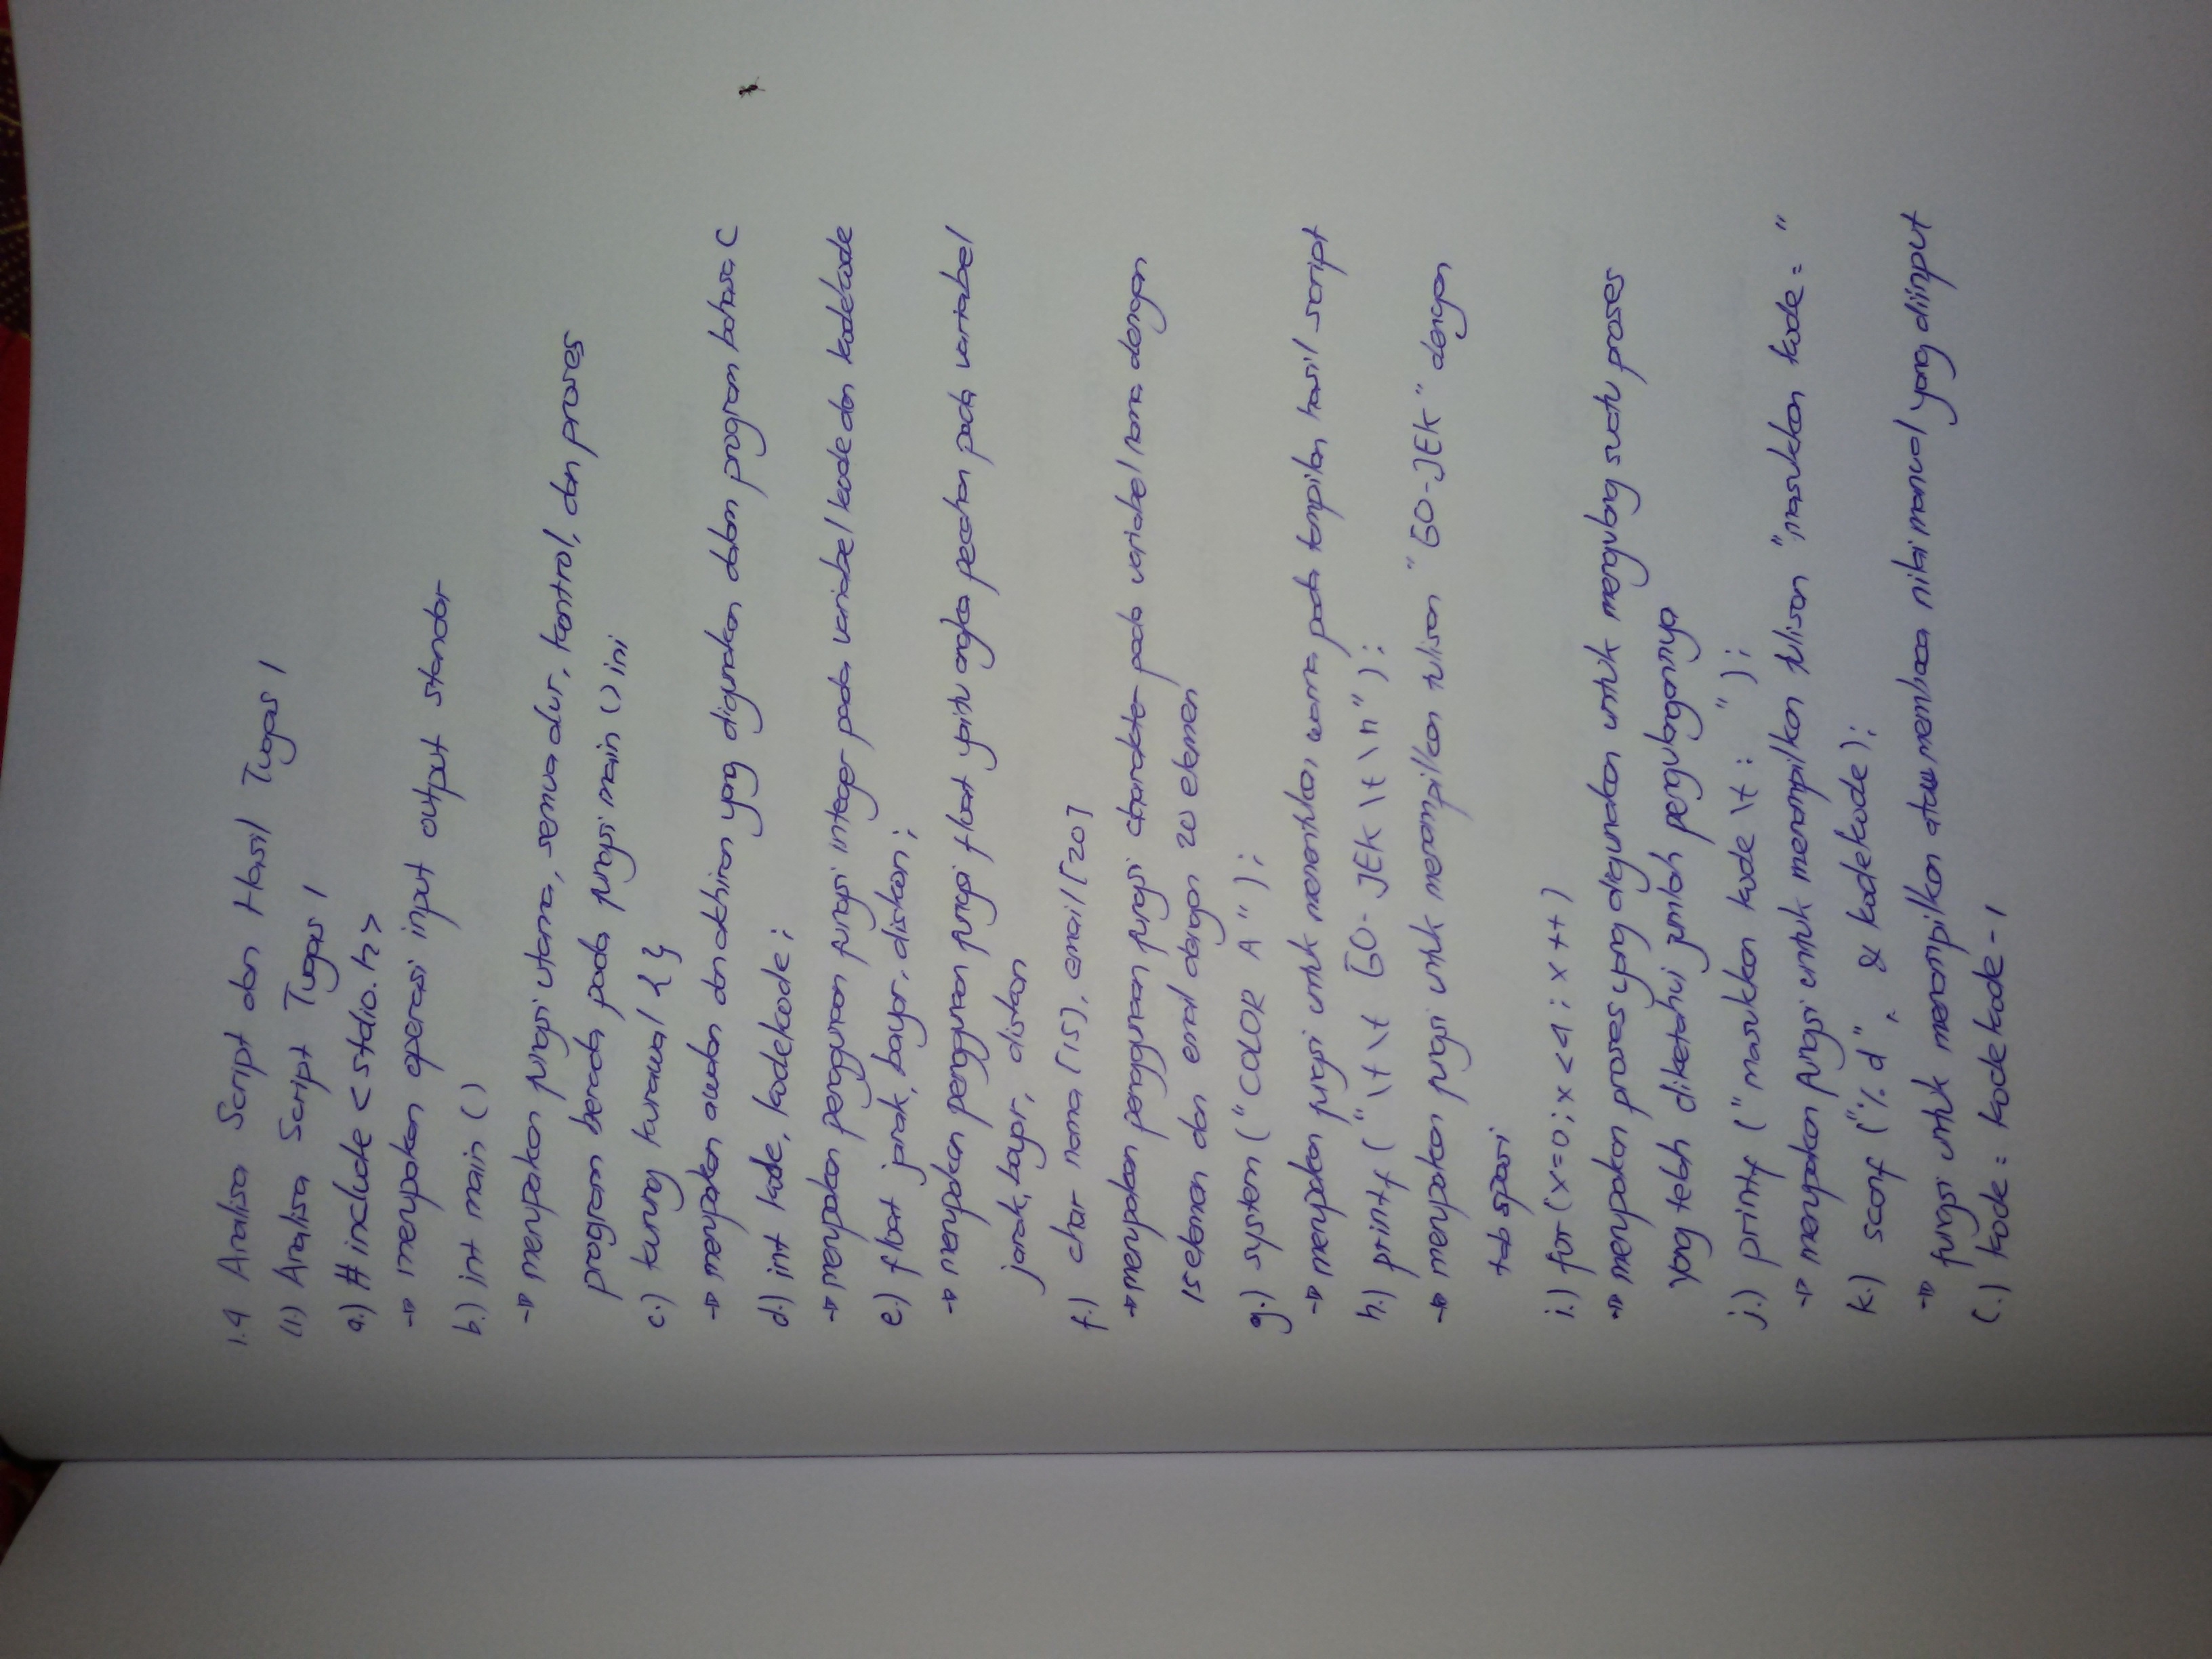 1.4 Analisa Script dan Hasil Tugas 1
(1.) Analisa Script Tugas 1
a.) #include <stdio.h>
→ merupakan operasi input output standar
b.) int main ()
→ merupakan fungsi utama, semua alur, kontrol, dan proses
program berada pada fungsi main () ini
c.) kurung kurawal { }
→ merupakan awalan dan akhiran yang digunakan dalam program bahasa C
d.) int kode, kodekode;
→ merupakan penggunaan fungsi integer pada variabel kode dan kodekode
e.) float jarak, bayar, diskon;
→ merupakan penggunaan fungsi float yaitu angka pecahan pada variabel
jarak, bayar, diskon
f.) char nama [15], email [20]
→ merupakan penggunaan fungsi charakter pada variabel nama dengan
15 elemen dan email dengan 20 elemen
g.) system ("COLOR A");
→ merupakan fungsi untuk menentukan warna pada tampilan hasil script
h.) printf ("\t\t GO-JEK \t\n");
→ merupakan fungsi untuk menampilkan tulisan "GO-JEK" dengan
tab spasi
i.) for (x=0; x<4; x++)
→ merupakan proses yang digunakan untuk mengulang suatu proses
yang telah diketahui jumlah pengulangannya
j.) printf ("masukkan kode \t : ");
→ merupakan fungsi untuk menampilkan tulisan "masukkan kode = "
k.) scanf ("%d", & kodekode);
→ fungsi untuk menampilkan atau membaca nilai manual yang diinput
l.) kode = kodekode - 1